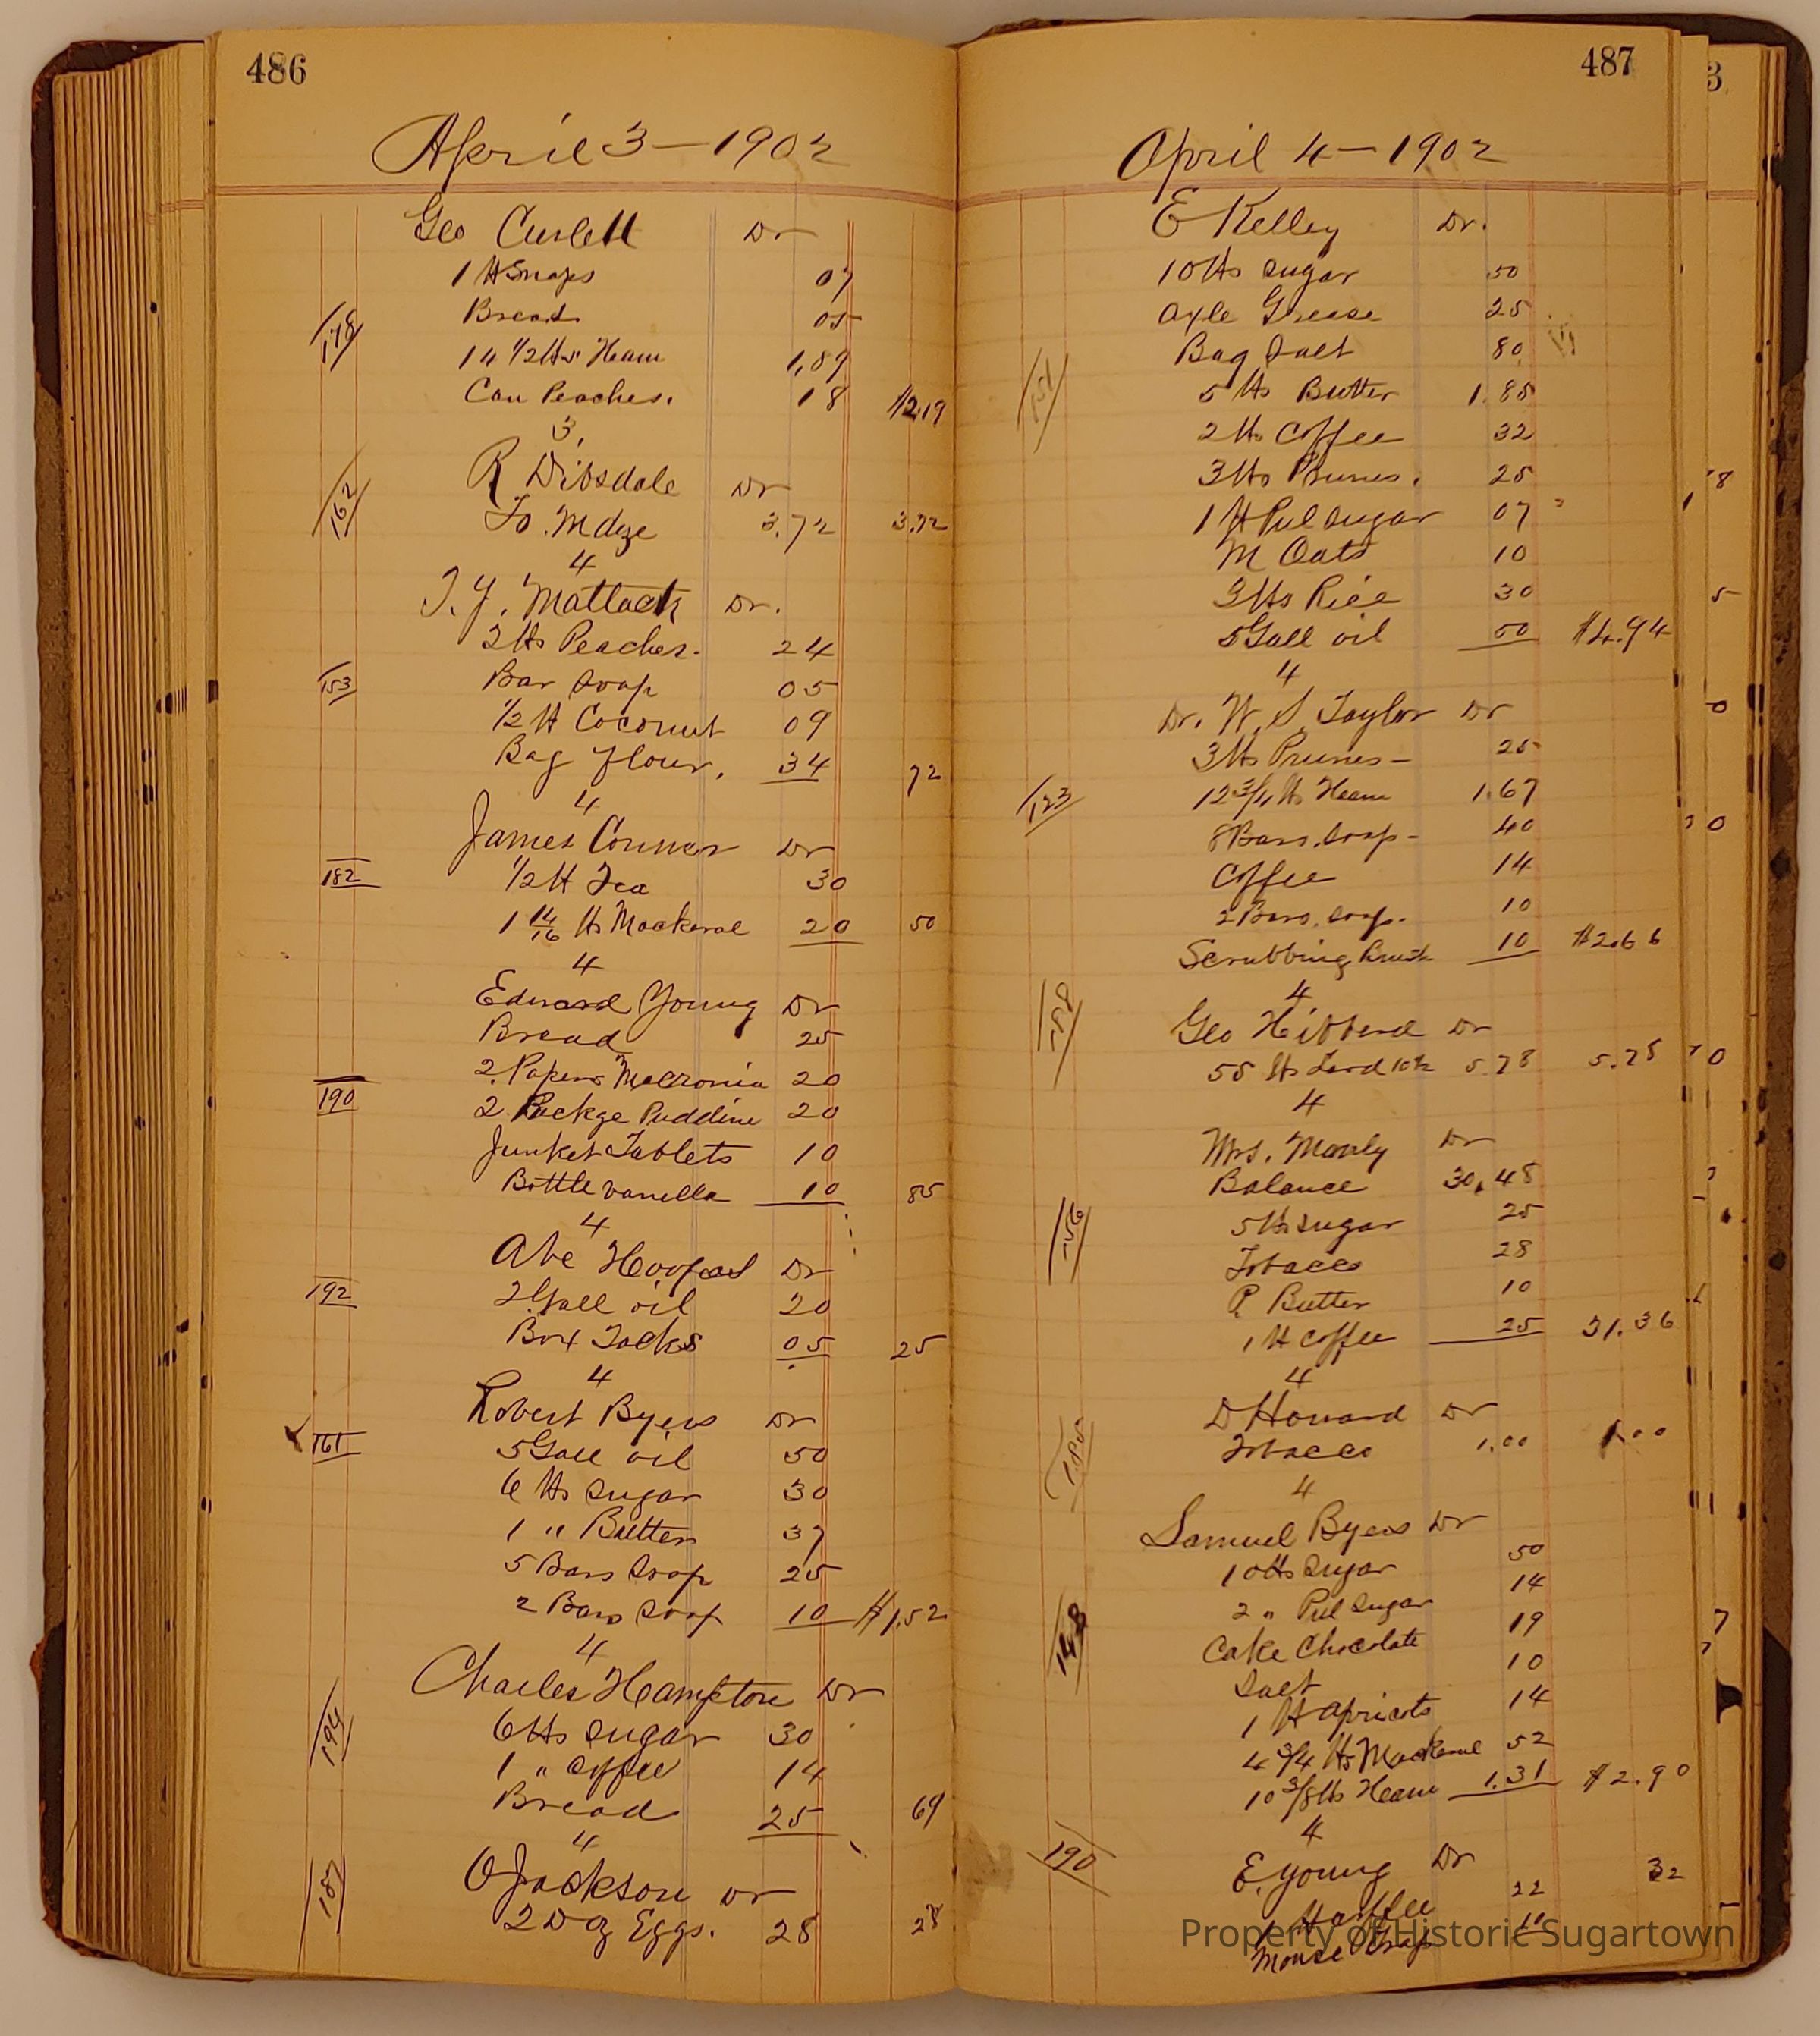 486
April 3 — 1902
Geo Curlett Dr
1 ℔ Snaps 07
Bread 05
178
14 1/2 ℔s Heam 1,89
Can Peaches. 18 $2.19
3,
R Dibsdale Dr
162
To. Mdze 3.72 3.72
4
T. J. Mattack Dr.
2 ℔s Peaches. 24
153
Bar Soap 05
1/2 ℔ Coconut 09
Bag flour, 34 72
4
James Conner Dr
182
1/2 ℔ Tea 30
1 14/16 ℔s Mackeral 20 50
4
Edward Young Dr
Bread 25
2 Papers Macronia 20
190
2 Packge Puddine 20
Junket Tablets 10
Bottle vanella 10 85
4
Abe Hoopes Dr
192
2 Gall oil 20
Box Tacks 05 25
4
Robert Byers Dr
161
5 Gall oil 50
6 ℔s Sugar 30
1 " Butter 37
5 Bars Soap 25
2 Bars Soap 10 $1,52
4
Charles Hampton Dr
194
6 ℔s Sugar 30
1 " Coffee 14
Bread 25 69
4
187
O Jackson Dr
2 Doz Eggs. 28 28
487
April 4 — 1902
E Kelley Dr.
10 ℔s Sugar 50
Axle Grease 25
Bag Salt 80
151
5 ℔s Butter 1.85
2 ℔s Coffee 32
3 ℔s Prunes. 25
1 ℔ Pul Sugar 07
M Oats 10
3 ℔s Rice 30
5 Gall oil 50 $4.94
4
Dr. W. S. Taylor Dr
3 ℔s Prunes — 25
123
12 3/4 ℔s Heam 1.67
8 Bars Soap — 40
Coffee 14
2 Bars. Soap. 10
Scrubbing Brush 10 $2.66
4
158
Geo Hibberd Dr
55 ℔s Lard 10 1/2 5.78 5.78
4
Mrs. Manly Dr
Balance 30.48
156
5 ℔s Sugar 25
Tobacco 28
P. Butter 10
1 ℔ Coffee 25 31.36
4
D Howard Dr
185
Tobacco 1.00 1.00
4
Samuel Byers Dr
10 ℔s Sugar 50
2 " Pul Sugar 14
148
Cake Chocolate 19
Salt 10
1 ℔ Apricots 14
4 3/4 ℔s Mackeral 52
10 3/8 ℔s Heam 1.31 $2.90
4
190
E. Young Dr 32
1 ℔ Coffee 22
Mouse Trap 10
Property of Historic Sugartown